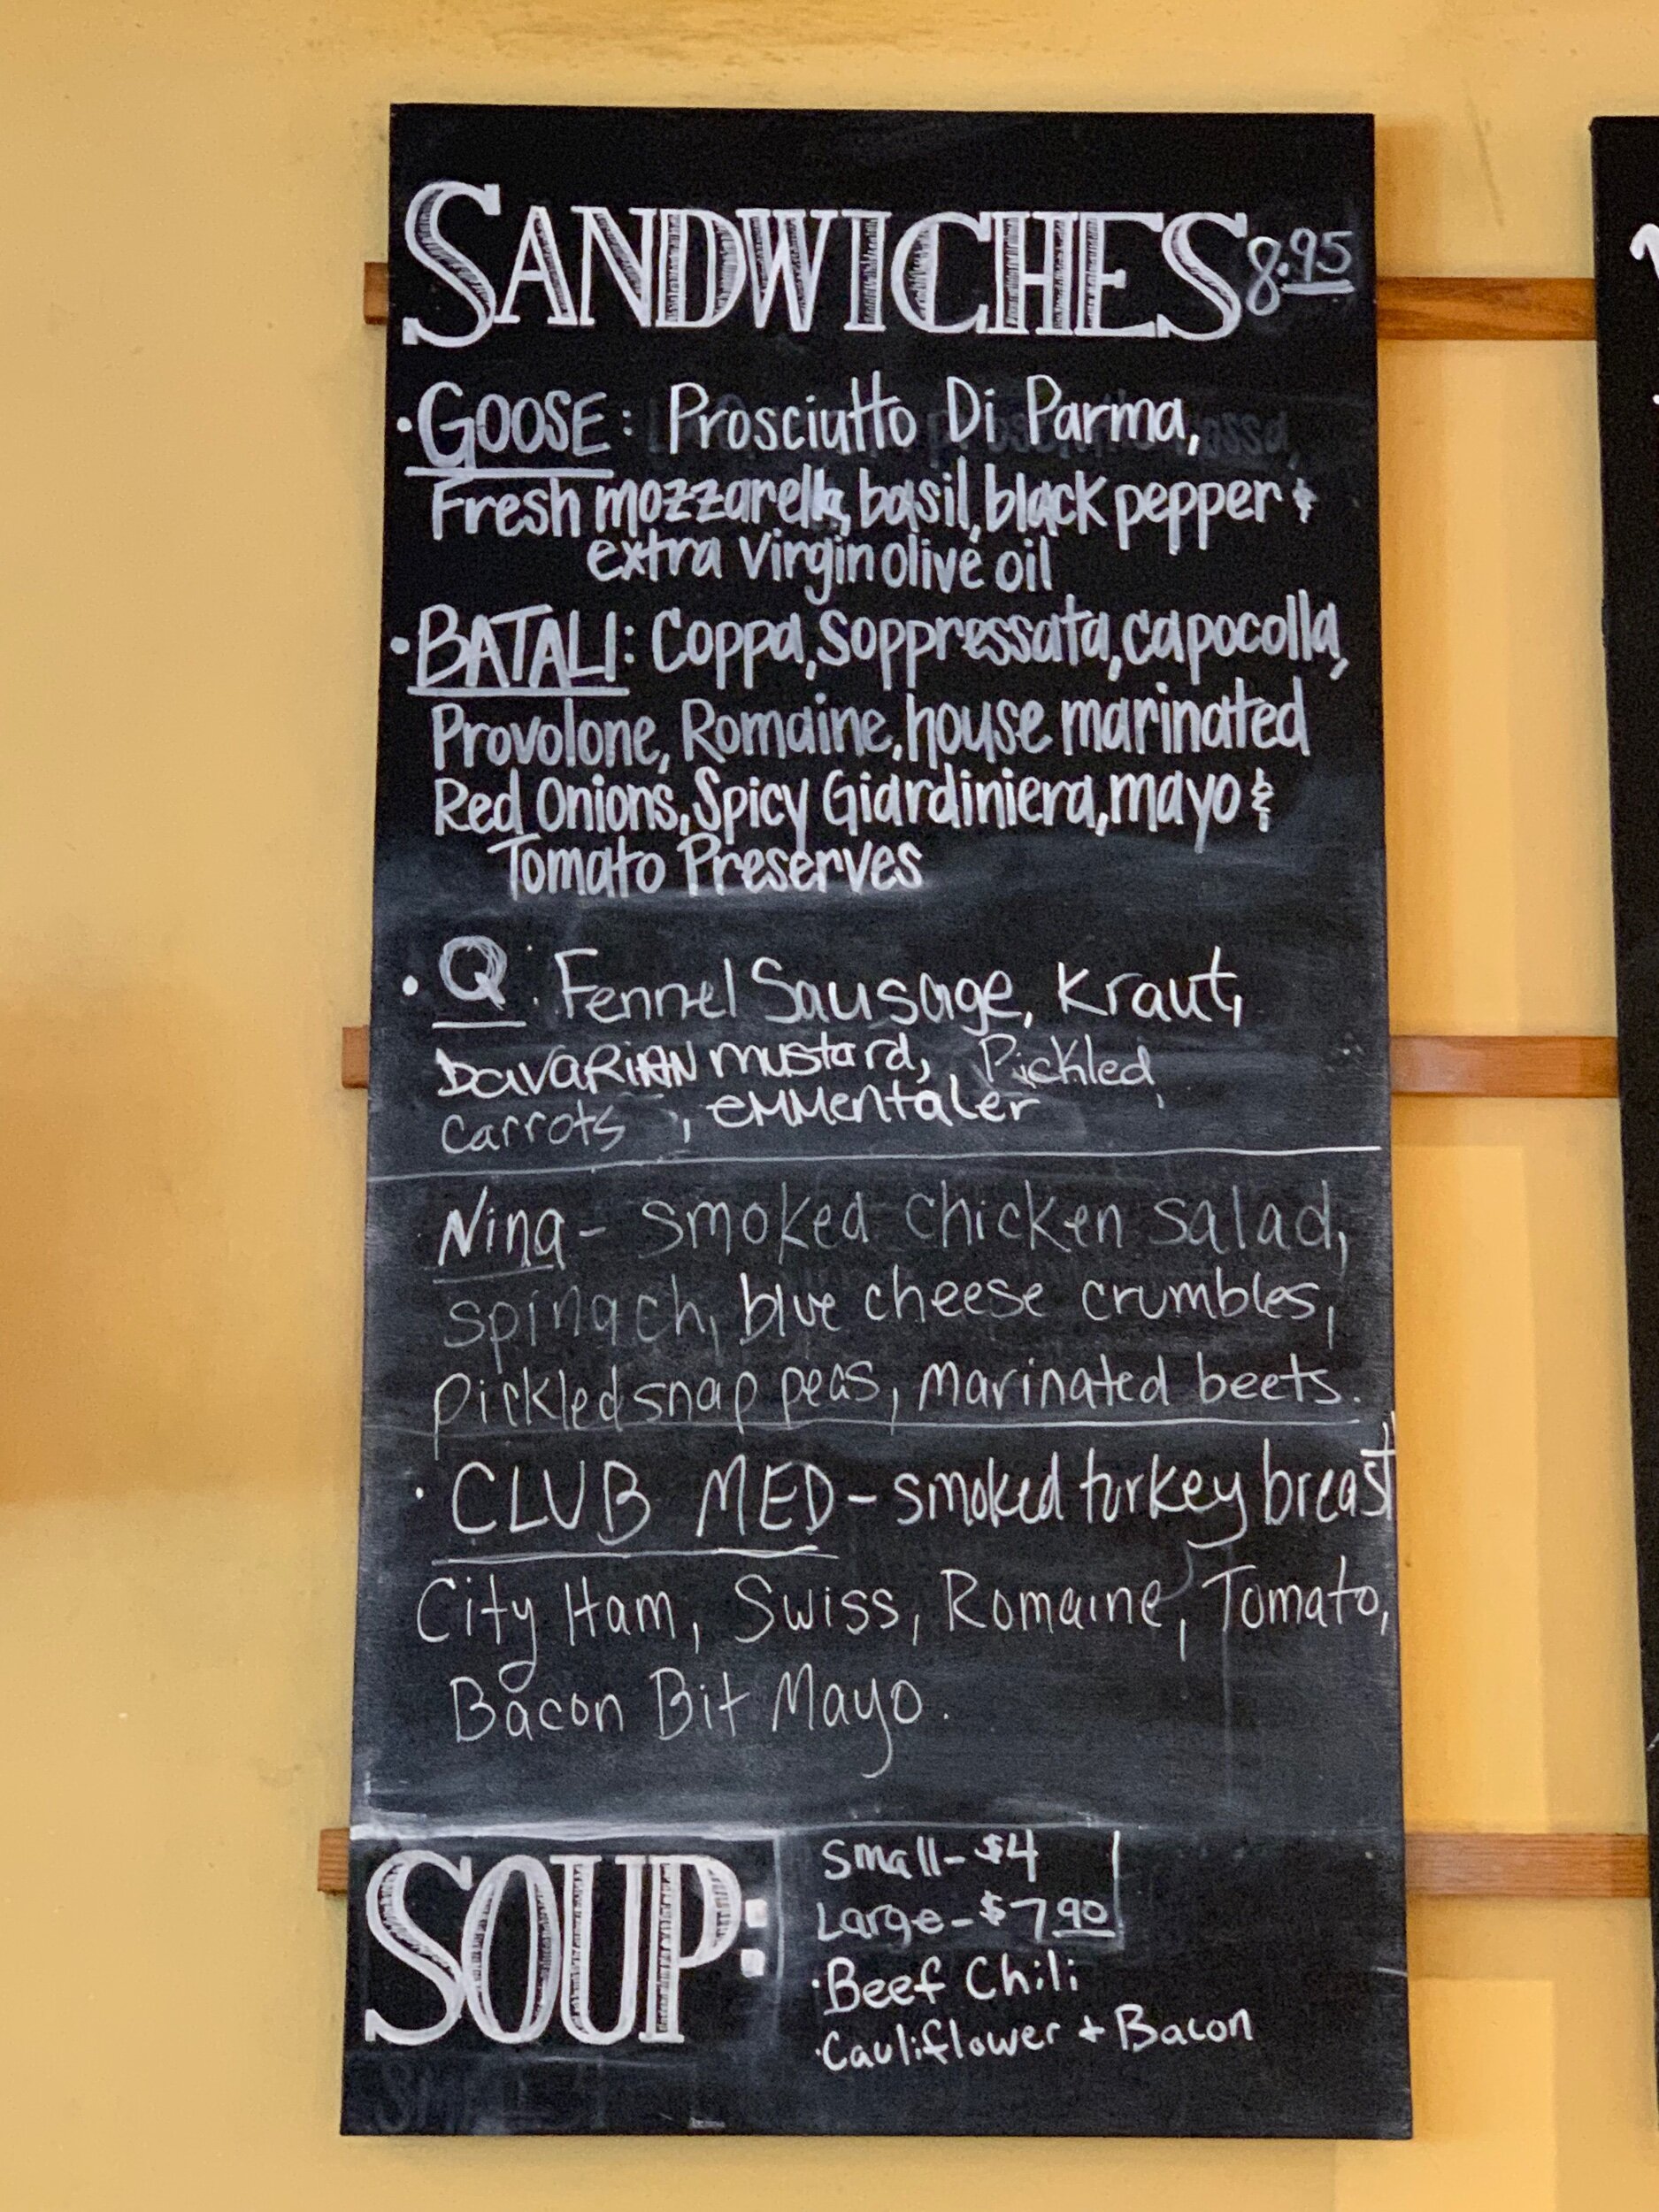 SANDWICHES 8.95
• GOOSE: Prosciutto Di Parma,
Fresh mozzarella, basil, black pepper &
extra virgin olive oil
• BATALI: Coppa, Soppressata, capocolla,
Provolone, Romaine, house marinated
Red Onions, Spicy Giardiniera, mayo &
Tomato Preserves
• Q: Fennel Sausage, Kraut,
bavaRiAN mustard, Pickled
carrots, emmentaler
Nina - smoked chicken salad,
spinach, blue cheese crumbles,
pickled snap peas, marinated beets.
• CLUB MED - smoked turkey breast
City Ham, Swiss, Romaine, Tomato,
Bacon Bit Mayo.
SOUP:
Small - $4
Large - $7 90
• Beef Chili
• Cauliflower + Bacon